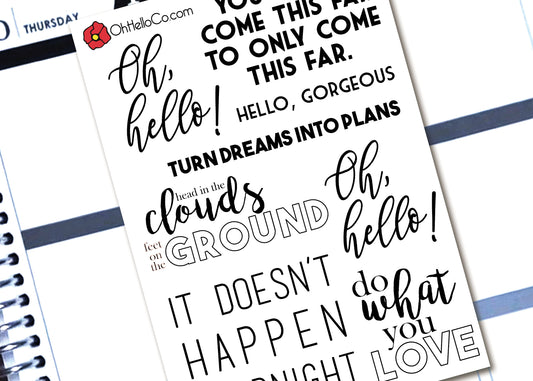 THURSDAY
OhHelloCo.com
COME THIS FAR
TO ONLY COME
THIS FAR.
Oh,
hello!
HELLO, GORGEOUS
TURN DREAMS INTO PLANS
head in the
clouds
feet
on
the
GROUND
Oh,
hello!
IT DOESN'T
HAPPEN
do
what
you
LOVE